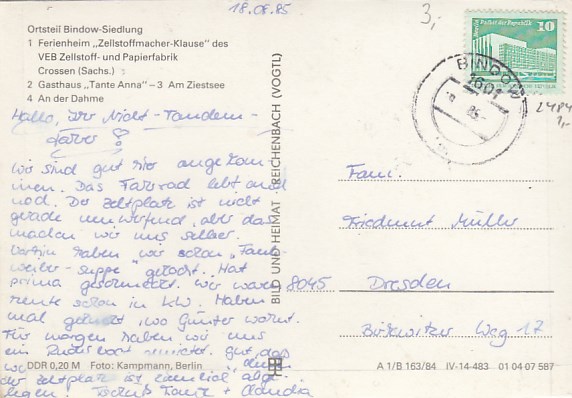 18.08.85
3,-
Ortsteil Bindow-Siedlung
1 Ferienheim „Zellstoffmacher-Klause" des
VEB Zellstoff- und Papierfabrik
Crossen (Sachs.)
2 Gasthaus „Tante Anna" – 3 Am Ziestsee
4 An der Dahme
Hallo, Ihr Nicht-Tandem-
fahrer!
Wir sind gut hier angekom
men. Das Fahrrad lebt auch
noch. Der Zeltplatz ist nicht
gerade umwerfend, aber das
machen wir uns selber.
haben wir schon
suppe" gekocht. Hat
prima geschmeckt. Wir waren
heute schon in KW. Haben
mal geguckt, wo Günter wohnt.
Für morgen haben wir uns
ein Ruderboot gemietet. Gut, daß
der Zeltplatz ist ziemlich abge
legen! + Claudia
DDR 0,20 M Foto: Kampmann, Berlin
BILD UND HEIMAT REICHENBACH (VOGTL)
Palast der Republik
10
DDR
BINDOW
1601
85
2484
1,-
Fam.
Friedmut Müller
8045 Dresden
Birkwitzer Weg 17
A 1/B 163/84 IV-14-483 01 04 07 587